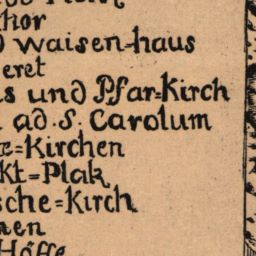 thor
waisen=haus
eret
s und Pfar=Kirch
ad . S. Carolum
=Kirchen
kt=Plak
sche=Kirch
nen
Höffe